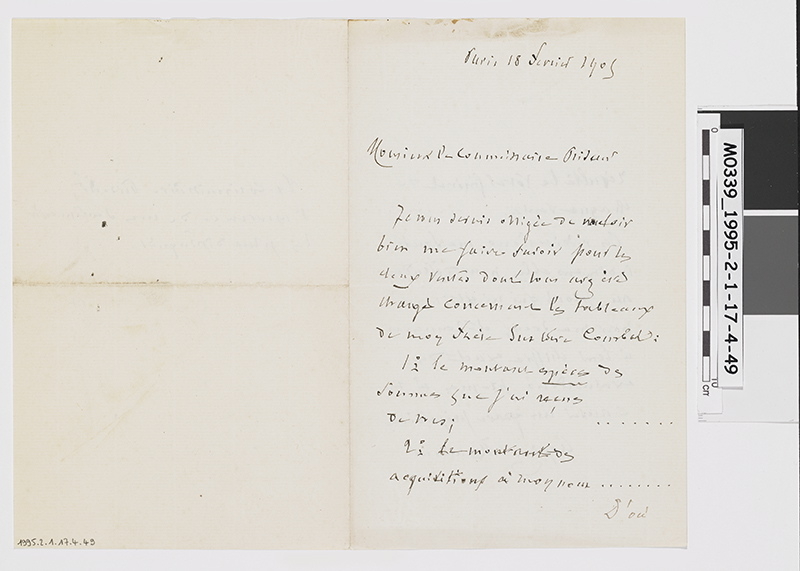 Paris 18 Février 1905
Monsieur le Commissaire Priseur
Je vous serais obligée de vouloir
bien me faire savoir pour les
deux ventes dont vous avez été
chargé concernant les tableaux
de mon frère Gustave Courbet:
1º le montant espèces des
sommes que j'ai reçues
de vous; .......
2º le montant des
acquisitions à mon nom ........
D'où
1995.2.1.17.4.49
M0339_1995-2-1-17-4-49
0
10
cm